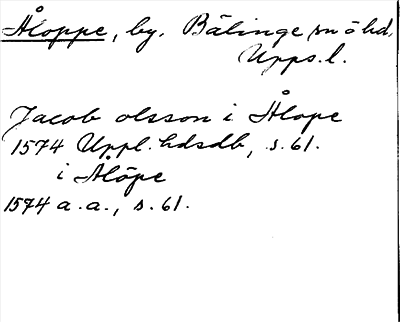 Åloppe, by. Bälinge sn o hd,
Upps. l.
Jacob olsson i Ålope
1574 Uppl. hdsdb, s. 61.
i Ålöpe
1574 a. a., s. 61.